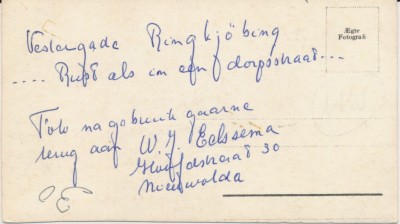 Vestergade Ringkjöbing
.... Rust als in een dorpsstraat...
Foto na gebruik gaarne
terug aan W. J. Eelssema
Hoofdstraat 30
Nieuwolda
E
Ægte
Fotografi